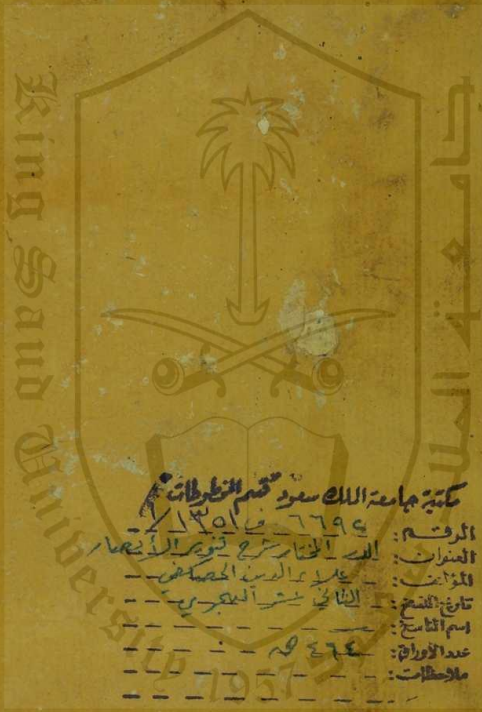 King Saud University
جامعة الملك سعود
1957
مكتبة جامعة الملك سعود "قسم المخطوطات"
الرقم: ٦٦٩٤ ف ١٣٥١ /
العنوان: الدر المختار شرح تنوير الأبصار
المؤلف: علاء الدين الحصكفي
تاريخ النسخ: الثاني عشر الهجري
اسم الناسخ:
عدد الأوراق: ٤٦٤ هـ
ملاحظات: